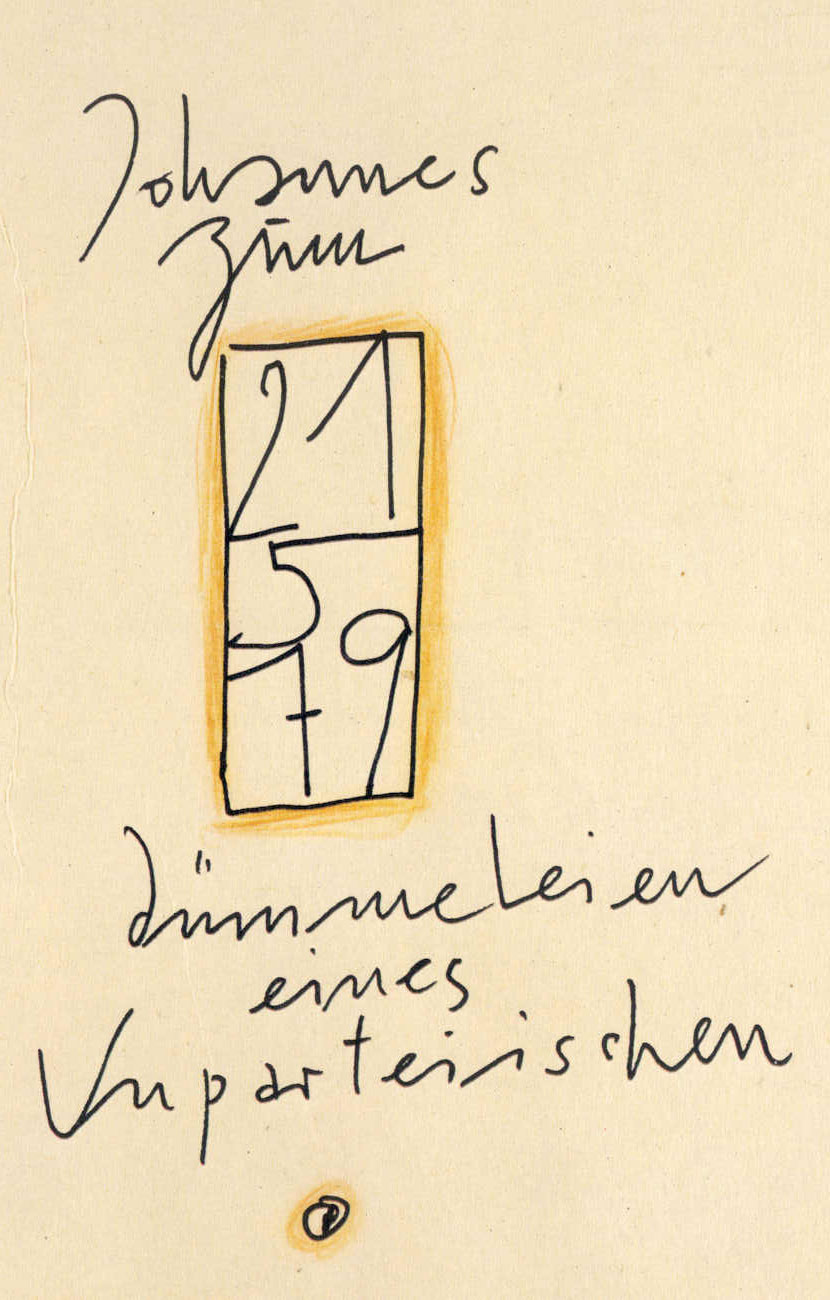 Johannes
zum
21
5
79
dümmeleien
eines
Unparteiischen